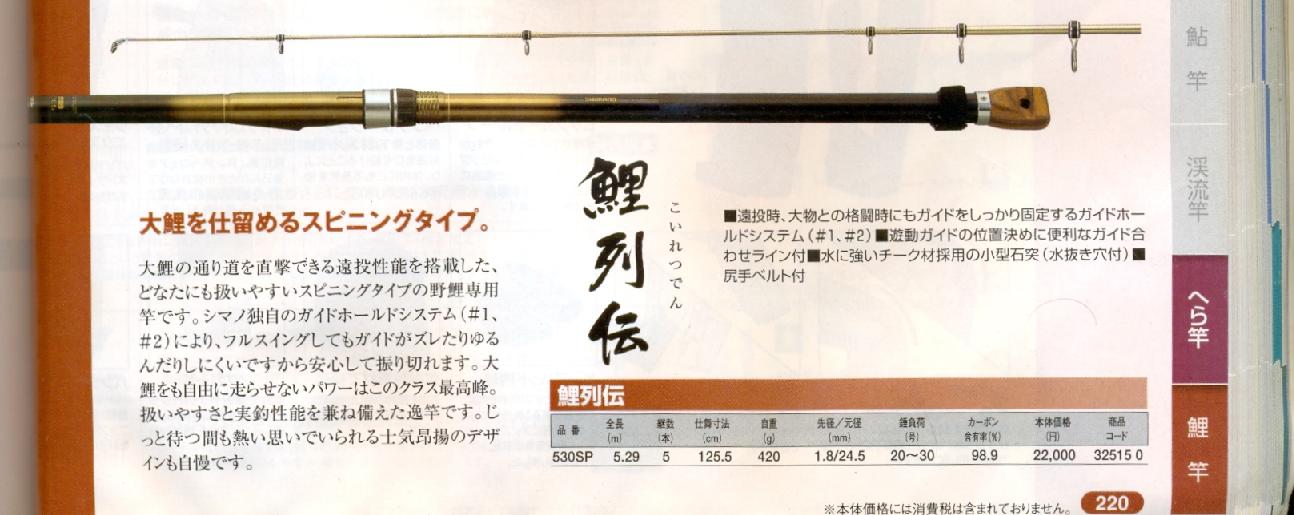 大鯉を仕留めるスピニングタイプ。
大鯉の通り道を直撃できる遠投性能を搭載した、
どなたにも扱いやすいスピニングタイプの野鯉専用
竿です。シマノ独自のガイドホールドシステム(#1、
#2)により、フルスイングしてもガイドがズレたりゆる
んだりしにくいですから安心して振り切れます。大
鯉をも自由に走らせないパワーはこのクラス最高峰。
扱いやすさと実釣性能を兼ね備えた逸竿です。じ
っと待つ間も熱い思いでいられる士気昂揚のデザ
インも自慢です。
鯉列伝
こいれつでん
■遠投時、大物との格闘時にもガイドをしっかり固定するガイドホー
ルドシステム(#1、#2)■遊動ガイドの位置決めに便利なガイド合
わせライン付■水に強いチーク材採用の小型石突(水抜き穴付)■
尻手ベルト付
鯉列伝
品番 全長(m) 継数(本) 仕舞寸法(cm) 自重(g) 先径/元径(mm) 錘負荷(号) カーボン含有率(%) 本体価格(円) 商品コード
530SP 5.29 5 125.5 420 1.8/24.5 20〜30 98.9 22,000 32515 0
※本体価格には消費税は含まれておりません。
220
鮎竿
渓流竿
へら竿
鯉竿